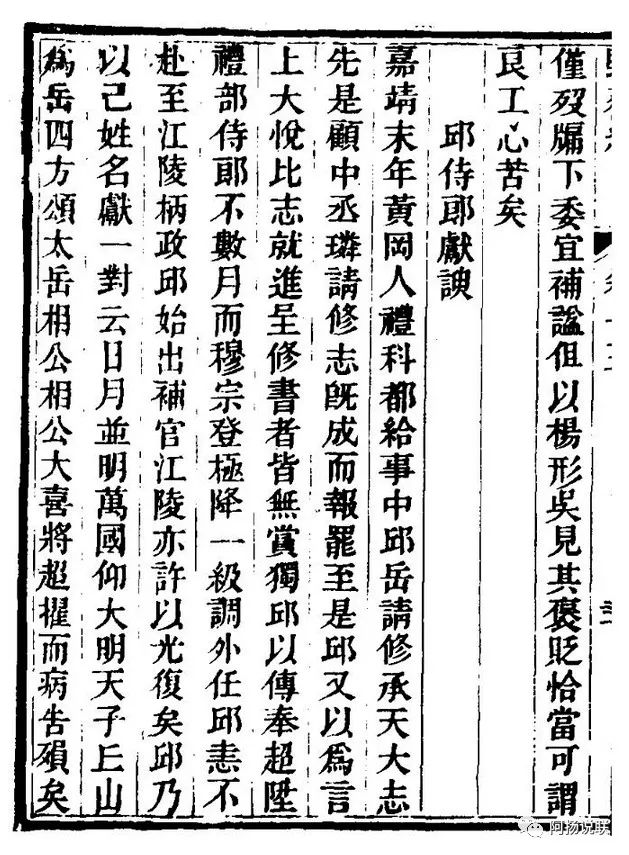 僅歿牖下委宜補謚但以楊形吳見其褒貶恰當可謂
良工心苦矣
邱侍郎獻諛
嘉靖末年黃岡人禮科都給事中邱岳請修承天大志
先是顧中丞璘請修志旣成而報罷至是邱又以爲言
上大悅比志就進呈修書者皆無賞獨邱以傳奉超陞
禮部侍郎不數月而穆宗登極降一級調外任邱恚不
赴至江陵柄政邱始出補官江陵亦許以光復矣邱乃
以己姓名獻一對云日月並明萬國仰大明天子丘山
爲岳四方頌太岳相公相公大喜將超擢而病告殞矣
阿扬说联